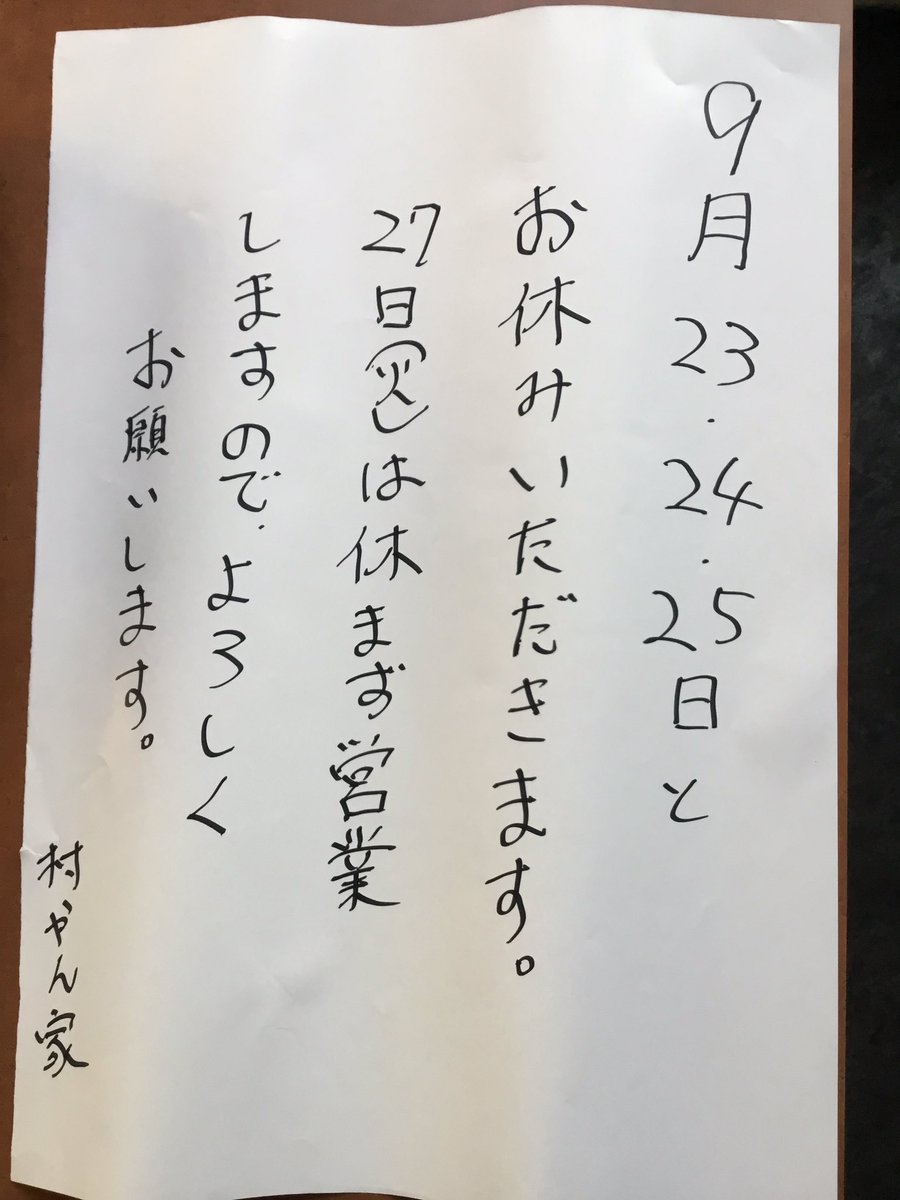 9月23.24.25日と
お休みいただきます。
27日(火)は休まず営業
しますので、よろしく
お願いします。
村やん家